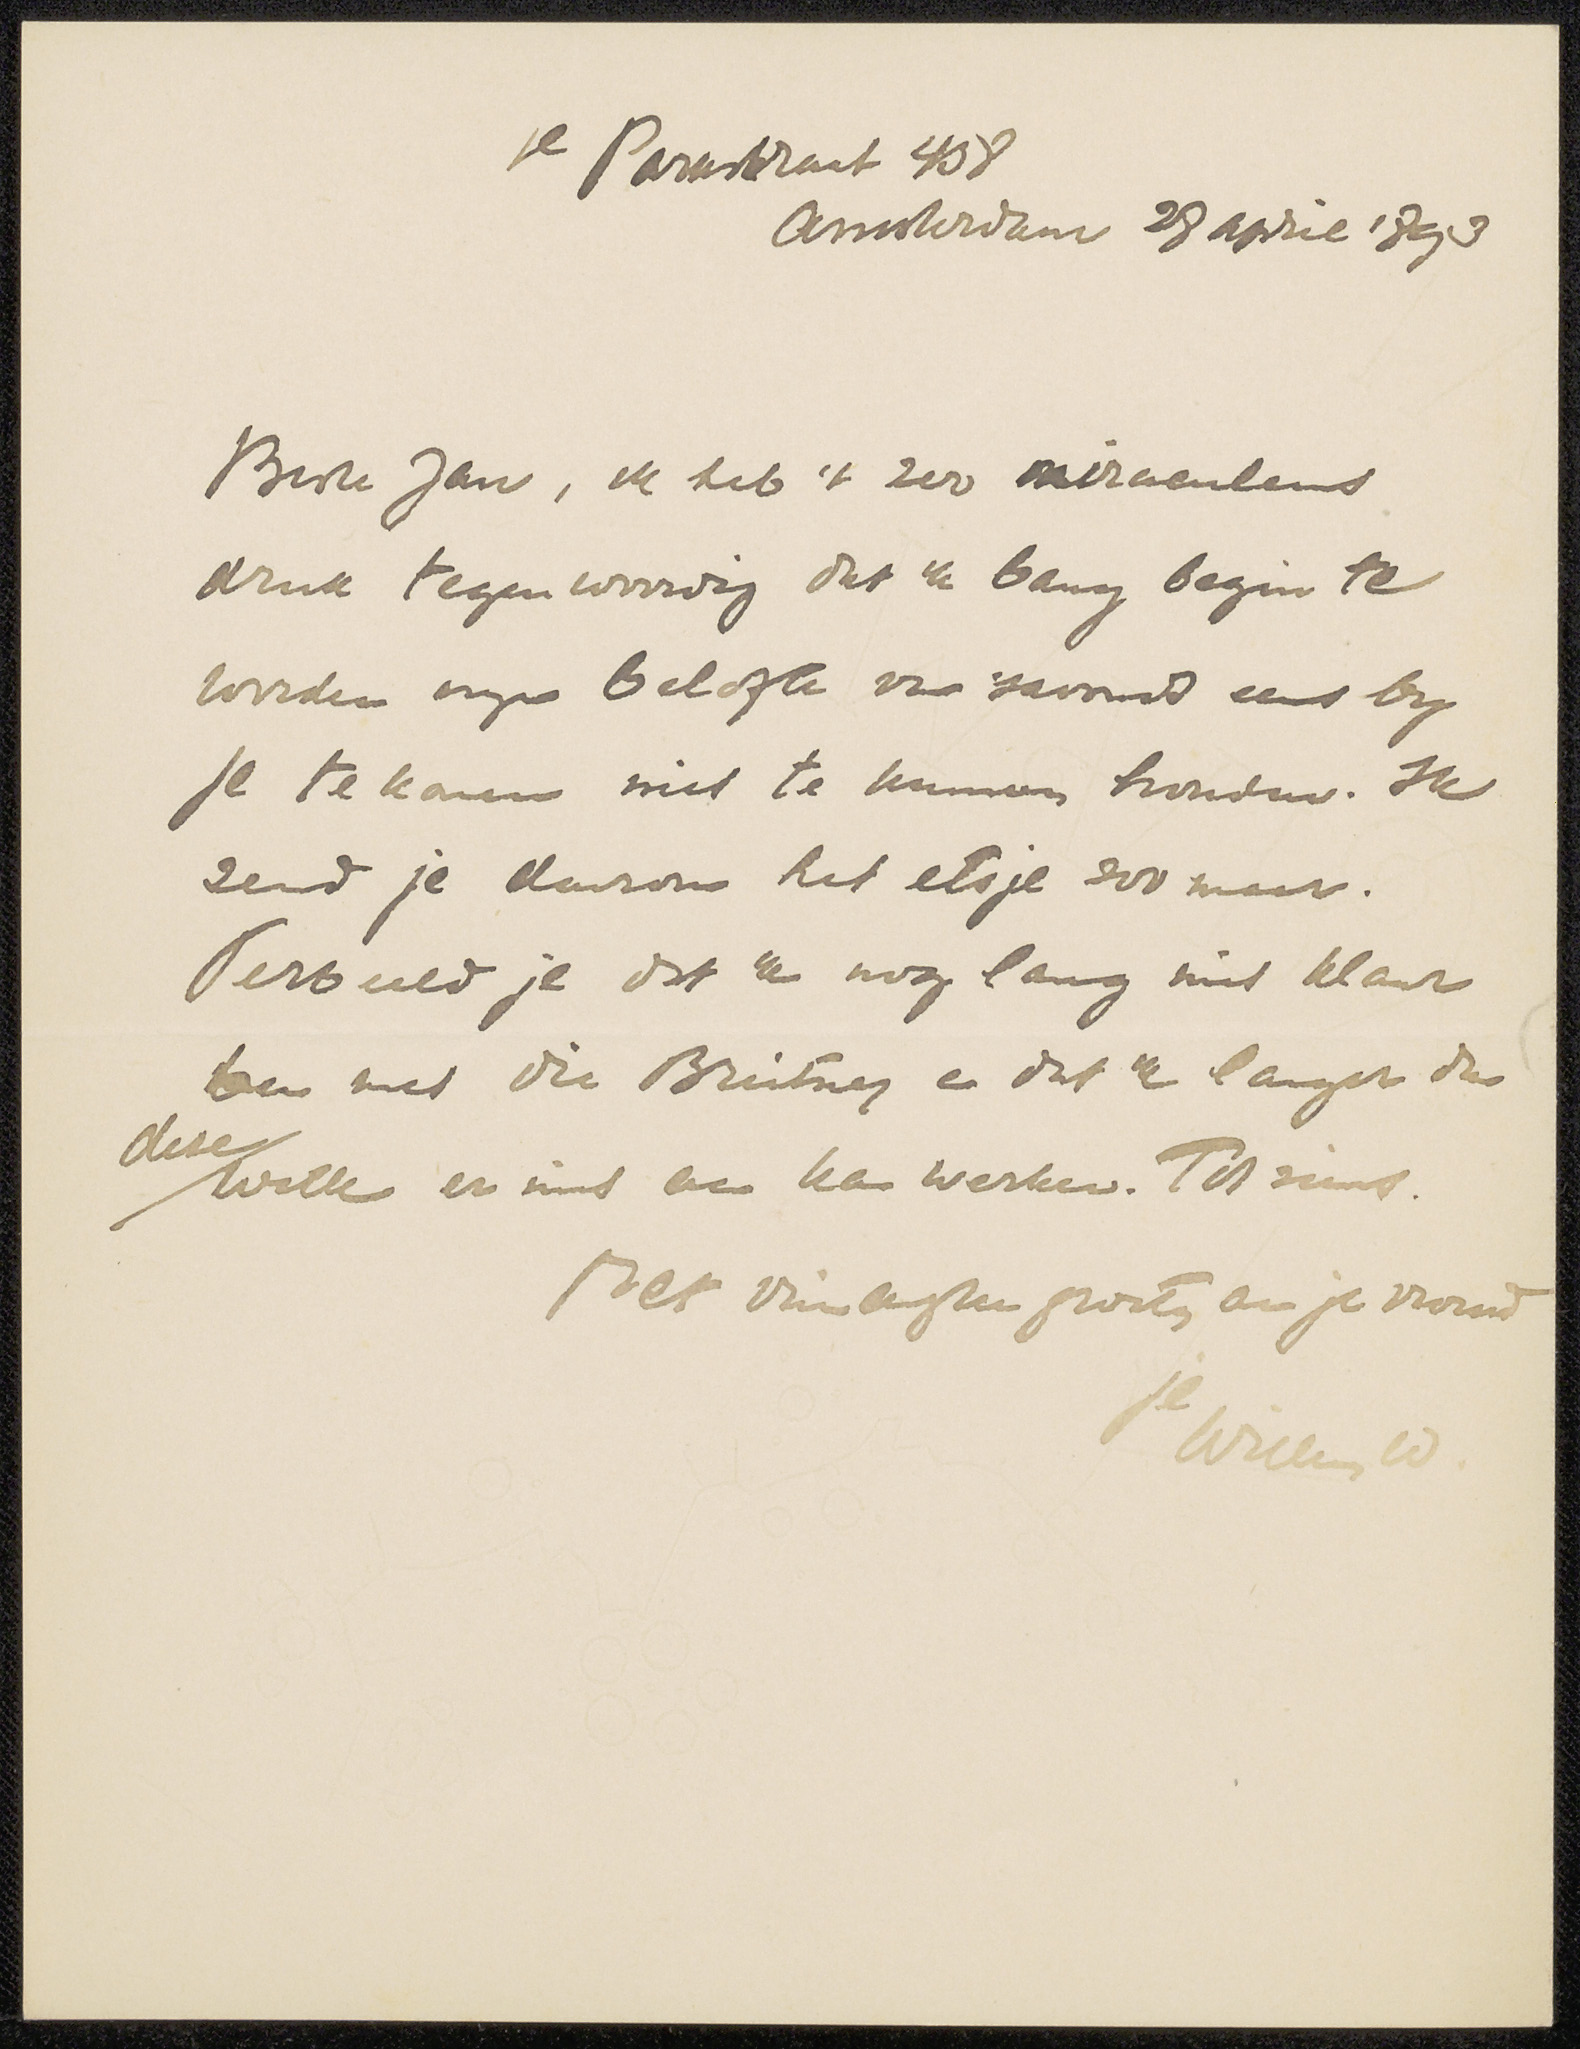 1e Parkstraat 438
Amsterdam 28 april 1893
Beste Jan, ik heb 't zoo miraculeus
druk tegenwoordig dat ik bang begin te
worden mijn belofte van 's avonds eens by
je te komen niet te kunnen houden. Ik
zend je daarom het etsje zoo maar.
Verbeeld je dat ik nog lang niet klaar
ben met die Breitner en dat ik langer dan
deze
week er niet aan kan werken. Tot ziens.
Met vriendelyke groeten aan je vrouw
je
Willem W.